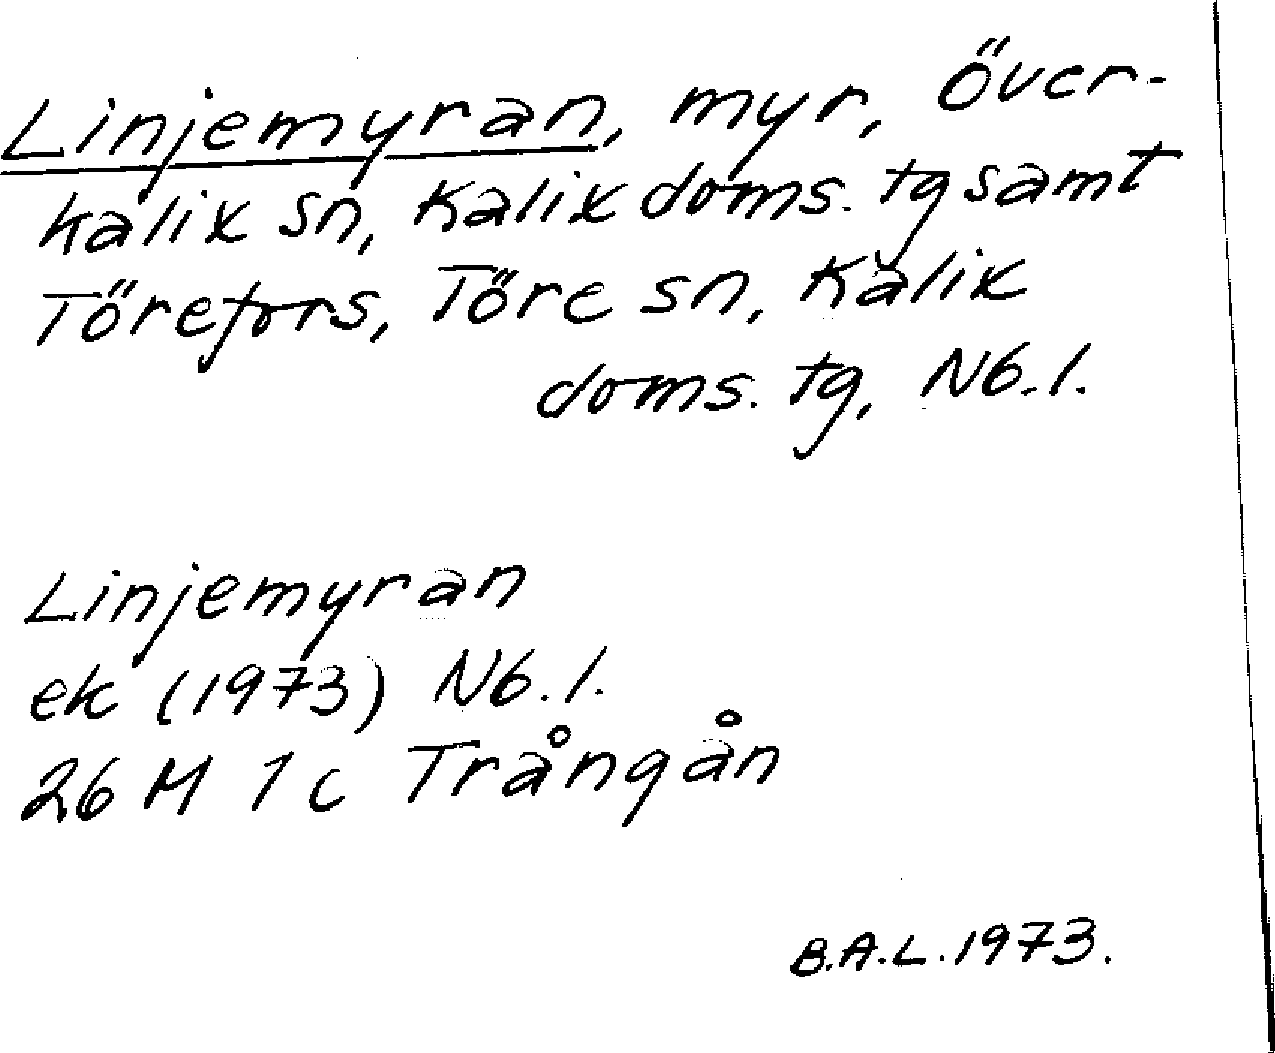 Linjemyran, myr, Över-
kalix sn, Kalix doms. tg samt
Törefors, Töre sn, Kalix
doms. tg, Nb. l.
Linjemyran
ek (1973) Nb. l.
26 M 1 c Trångån
B.A.L. 1973.